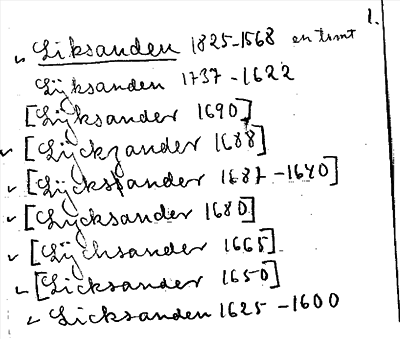 1.
Liksanden 1825-1568 en tomt
Lÿksanden 1737-1622
[Lÿksander 1690]
[Lÿckzander 1688]
[Lÿcksander 1687-1640]
[Lycksander 1680]
[Lÿchsander 1665]
[Licksander 1650]
Licksanden 1625-1600